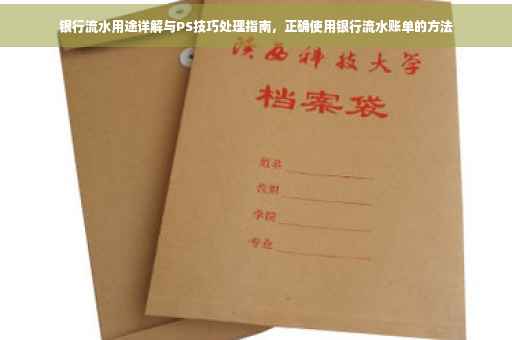 银行流水用途详解与PS技巧处理指南，正确使用银行流水账单的方法
陕西科技大学
档案袋
姓名
性别
学院
专业